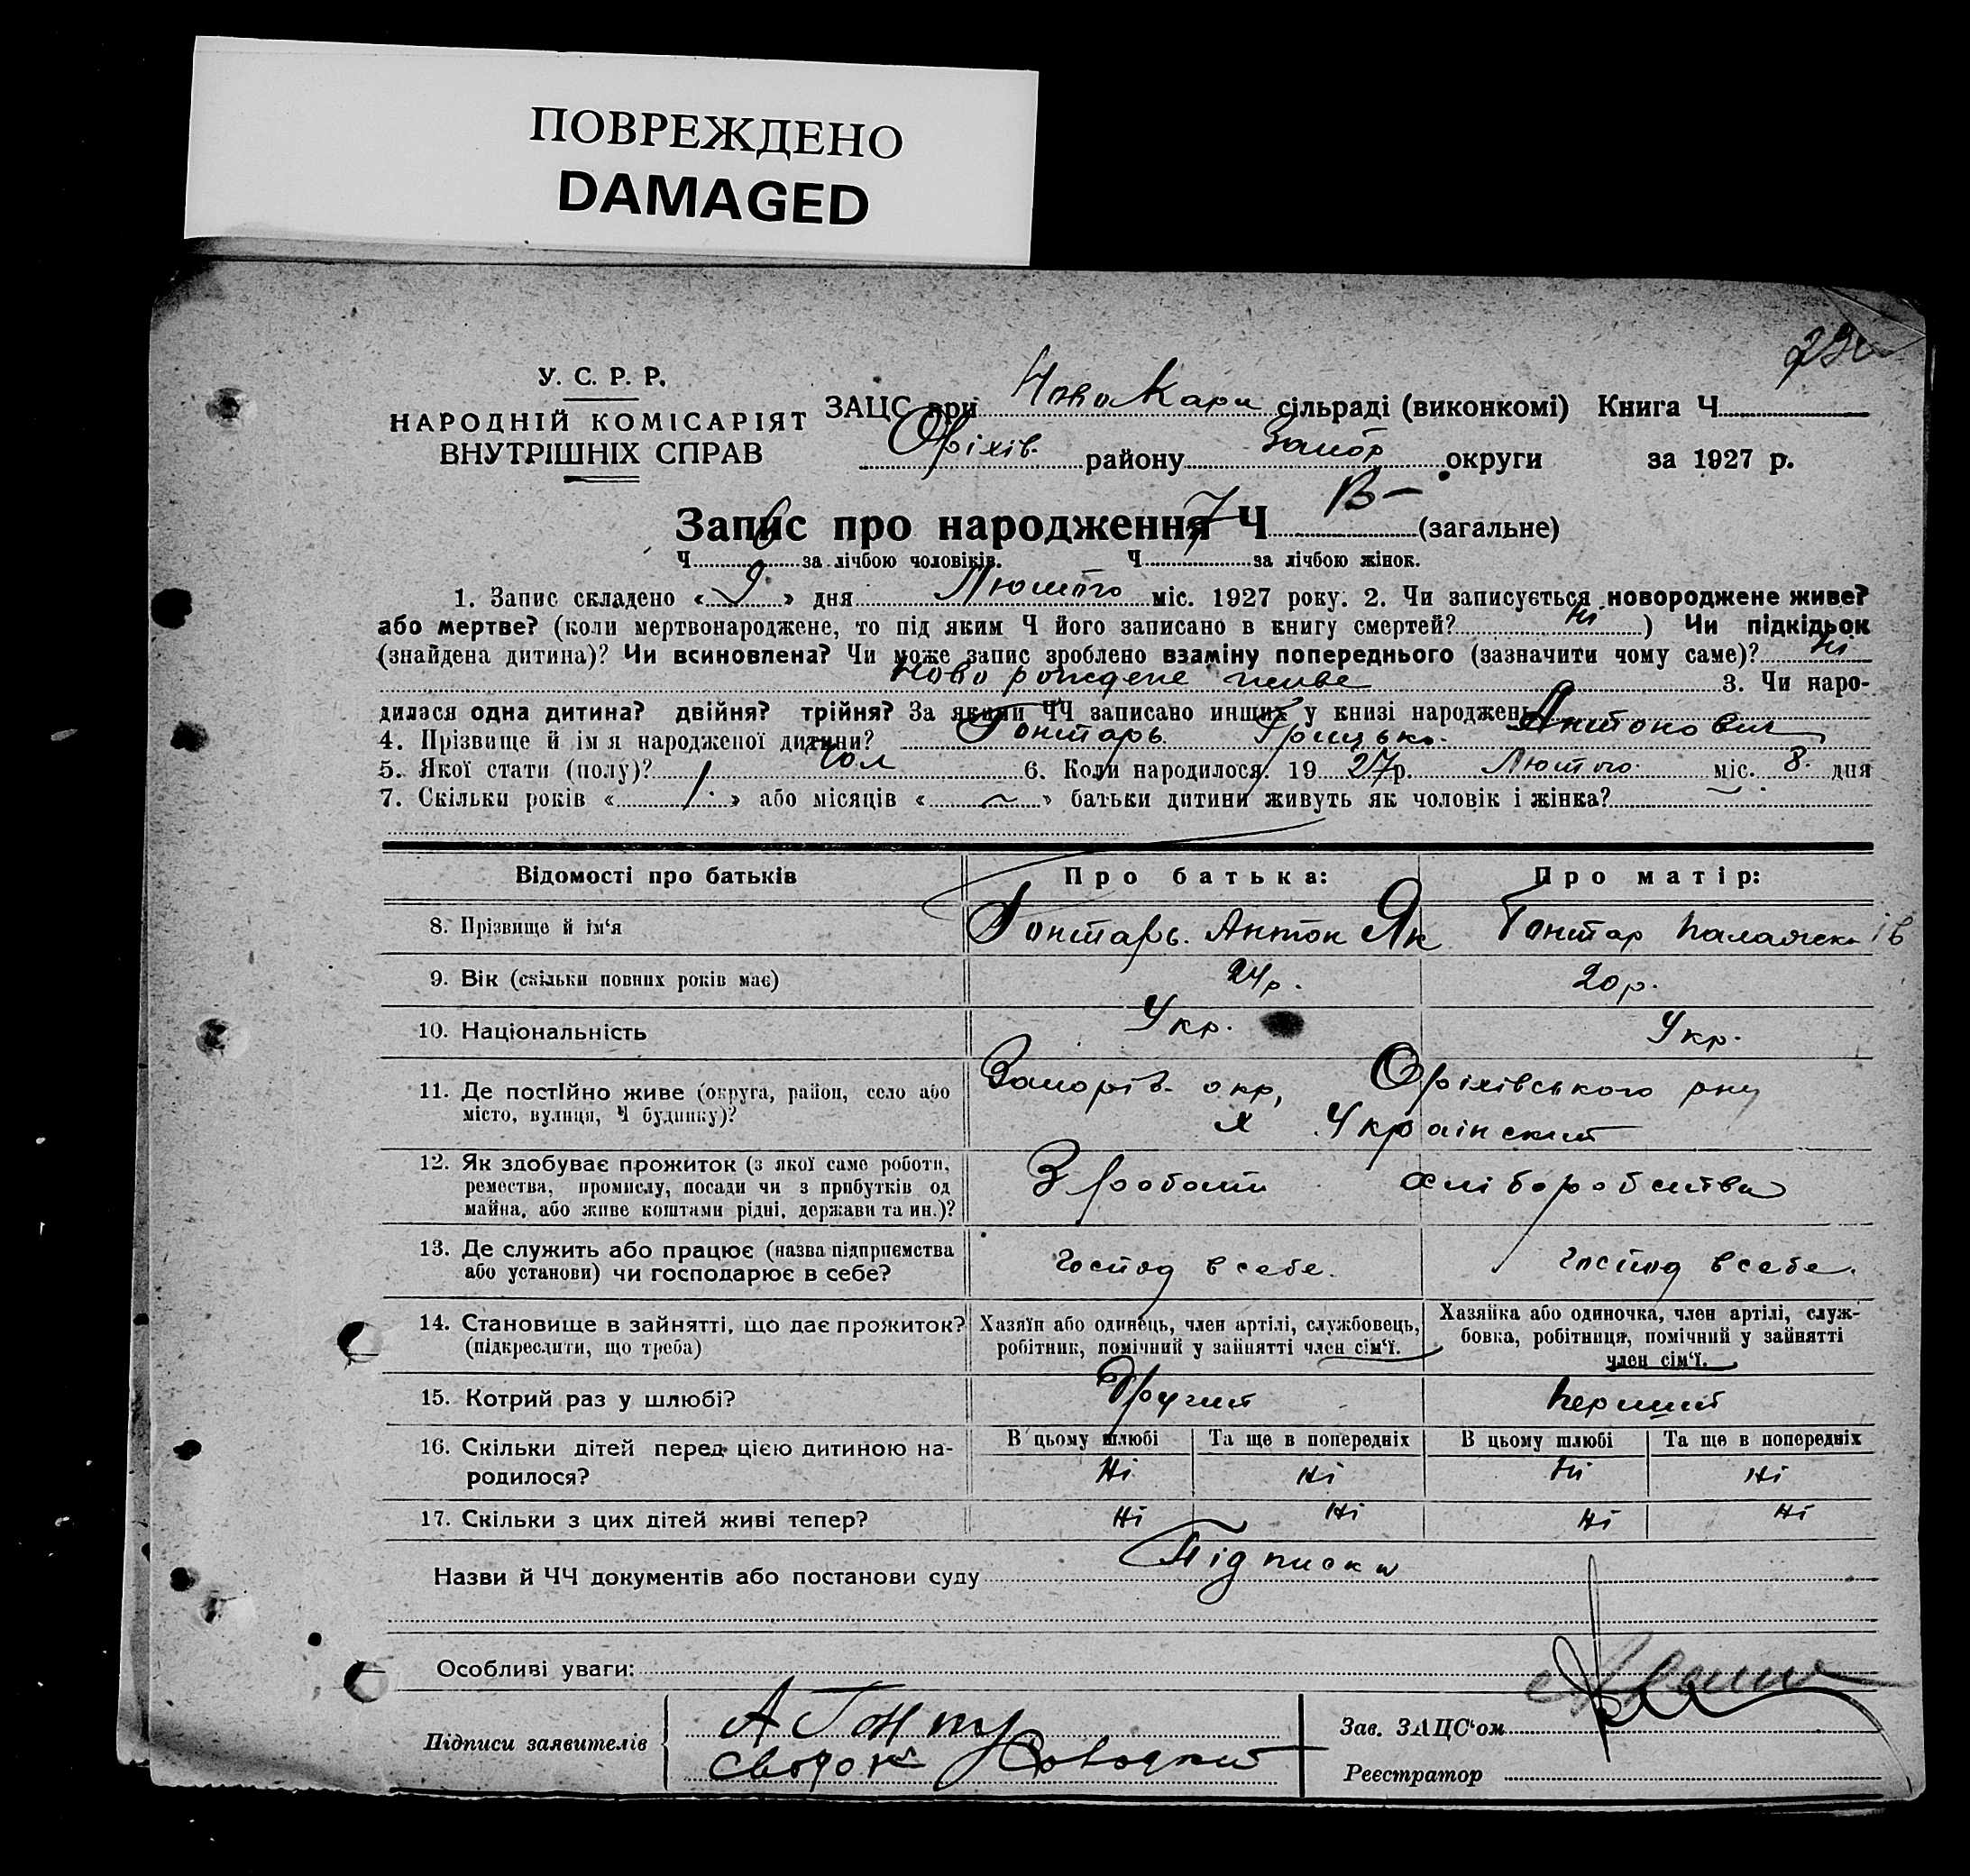 ПОВРЕЖДЕНО
DAMAGED
У. С. Р. Р.
НАРОДНІЙ КОМІСАРІЯТ
ВНУТРІШНІХ СПРАВ
ЗАЦС при Ново Кари сільраді (виконкомі) Книга Ч
Оріхів. району Запор округи за 1927 р.
Запис про народження Ч (загальне)
Ч 6 за лічбою чоловіків. Ч 7 за лічбою жінок.
1. Запис складено «9» дня Лютого міс. 1927 року. 2. Чи записується новороджене живе?
або мертве? (коли мертвонароджене, то під яким Ч його записано в книгу смертей? Ні ) Чи підкідьок
(знайдена дитина)? Чи всиновлена? Чи може запис зроблено взаміну попереднього (зазначити чому саме)? Ні
Ново рождене живе 3. Чи наро-
дилася одна дитина? двійня? трійня? За якими ЧЧ записано инших у книзі народжень
4. Прізвище й ім я народженої дитини? Гонтарь Грицько Антонович
5. Якої стати (полу)? чол 6. Коли народилося. 19 27 р. Лютого міс. 8 дня
7. Скільки років « 1 » або місяців « — » батьки дитини живуть як чоловік і жінка? —
Відомості про батьків Про батька: Про матір:
8. Прізвище й ім‘я Гонтарь. Антон Як Гонтар
9. Вік (скільки повних років має) 24 р. 20 р.
10. Національність Укр. Укр.
11. Де постійно живе (округа, район, село або Запорів. окр, Оріхівського рну
місто, вулиця, Ч будинку)? х Український
12. Як здобуває прожиток (з якої саме роботи, З роботи хліборобства
ремества, промислу, посади чи з прибутків од
майна, або живе коштами рідні, держави та ин.)?
13. Де служить або працює (назва підприємства Господ в себе. господ в себе.
або установи) чи господарює в себе?
14. Становище в зайнятті, що дає прожиток? Хазяїн або одинець, член артілі, службовець, Хазяйка або одиночка, член артілі, служ-
(підкреслити, що треба) робітник, помічний у зайнятті член сім‘ї. бовка, робітниця, помічний у зайнятті
член сім‘ї.
15. Котрий раз у шлюбі? Другий перший
16. Скільки дітей перед цією дитиною на- В цьому шлюбі Та ще в попередніх В цьому шлюбі Та ще в попередніх
родилося? Ні Ні Ні Ні
17. Скільки з цих дітей живі тепер? Ні Ні Ні Ні
Назви й ЧЧ документів або постанови суду Підписки
Особливі уваги:
Підписи заявителів А Гонтар
Зав. ЗАЦС‘ом
Реєстратор